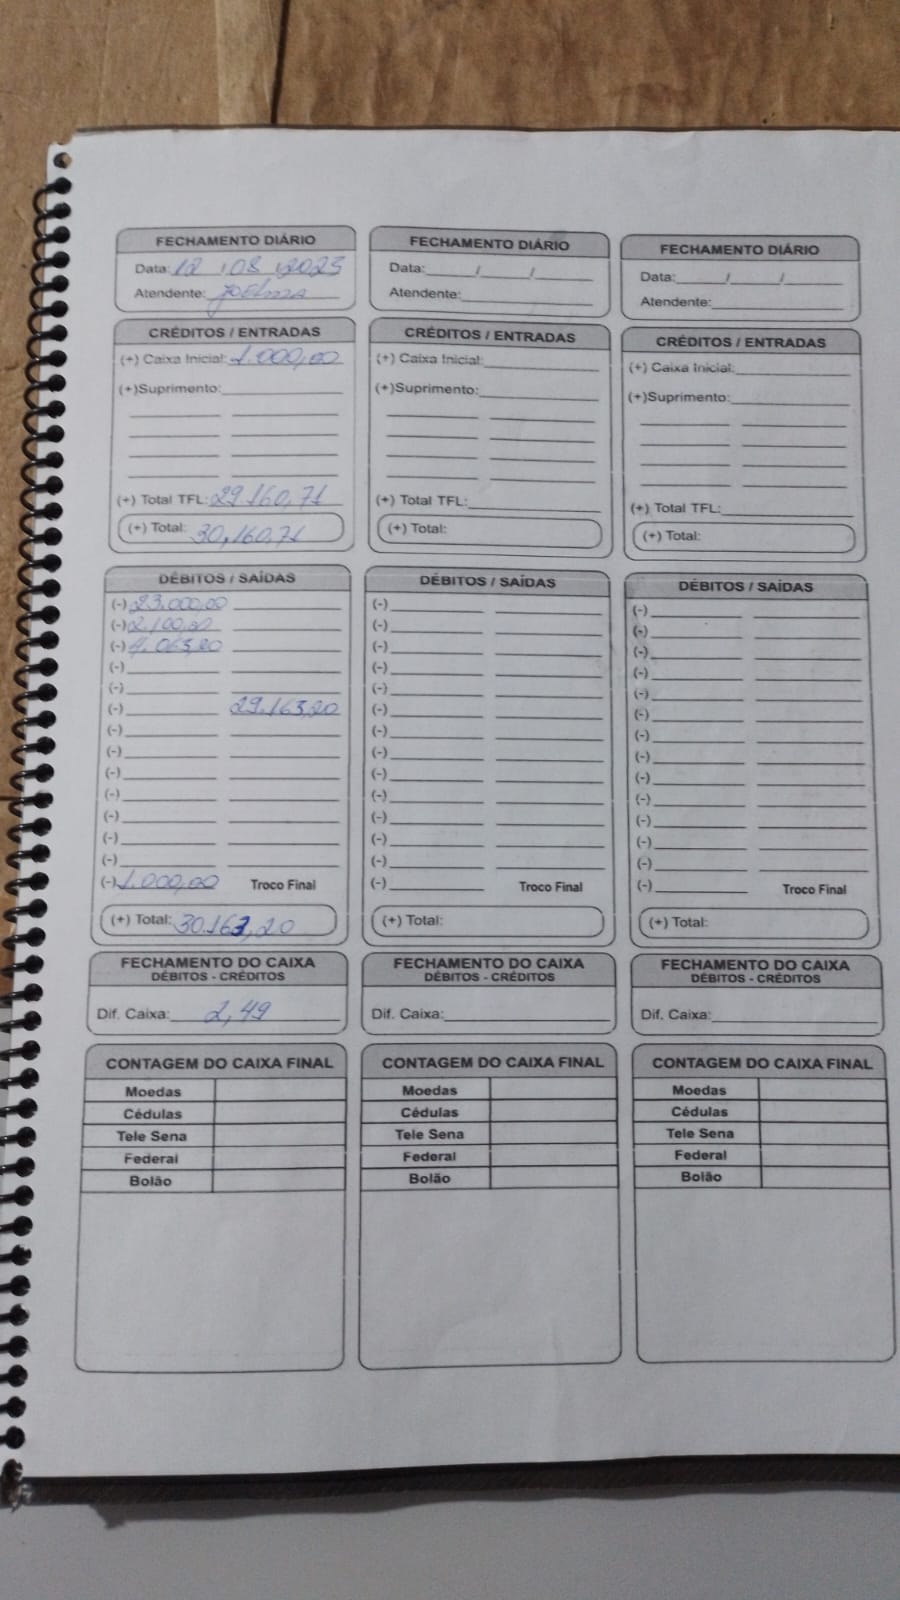 FECHAMENTO DIÁRIO
Data: 12 / 08 / 2023
Atendente: Joelma
CRÉDITOS / ENTRADAS
(+) Caixa Inicial: 1.000,00
(+)Suprimento:
(+) Total TFL: 29.160,71
(+) Total: 30,160,71
DÉBITOS / SAÍDAS
(-) 23.000,00
(-) 2.100,00
(-) 4.063,20
(-)
(-)
(-) 29.163,20
(-)
(-)
(-)
(-)
(-)
(-)
(-)
(-) 1.000,00 Troco Final
(+) Total: 30.163,20
FECHAMENTO DO CAIXA
DÉBITOS - CRÉDITOS
Dif. Caixa: 2,49
CONTAGEM DO CAIXA FINAL
Moedas
Cédulas
Tele Sena
Federal
Bolão
FECHAMENTO DIÁRIO
Data: / /
Atendente:
CRÉDITOS / ENTRADAS
(+) Caixa Inicial:
(+)Suprimento:
(+) Total TFL:
(+) Total:
DÉBITOS / SAÍDAS
(-)
(-)
(-)
(-)
(-)
(-)
(-)
(-)
(-)
(-)
(-)
(-)
(-)
(-) Troco Final
(+) Total:
FECHAMENTO DO CAIXA
DÉBITOS - CRÉDITOS
Dif. Caixa:
CONTAGEM DO CAIXA FINAL
Moedas
Cédulas
Tele Sena
Federal
Bolão
FECHAMENTO DIÁRIO
Data: / /
Atendente:
CRÉDITOS / ENTRADAS
(+) Caixa Inicial:
(+)Suprimento:
(+) Total TFL:
(+) Total:
DÉBITOS / SAÍDAS
(-)
(-)
(-)
(-)
(-)
(-)
(-)
(-)
(-)
(-)
(-)
(-)
(-)
(-) Troco Final
(+) Total:
FECHAMENTO DO CAIXA
DÉBITOS - CRÉDITOS
Dif. Caixa:
CONTAGEM DO CAIXA FINAL
Moedas
Cédulas
Tele Sena
Federal
Bolão